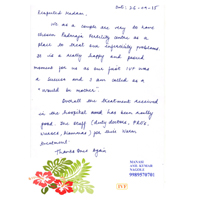 Dt: 26-09-15
Respected Madam,
We as a couple are very to have
chosen Padmaja fertility centre as a
place to treat our infertility problems.
It is a really happy and proud
moment for us as our first IUF was
a success and I am called as a
"would be mother".
Overall the treatment received
in the hospital has been really
good. The staff (duty doctors, PROs,
nurses, Mammas) for their warm
treatment.
Thanks Once Again
MANASI
AND KUMAR
NAGOLE
9989570701
IVF